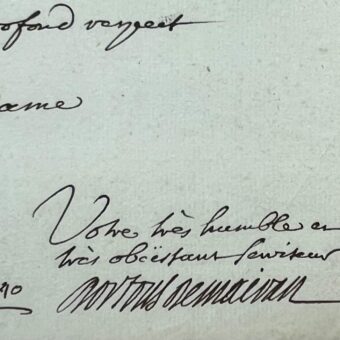 ofond respect
ame
Votre très humble et
très obéissant serviteur
40 Dortous de mairan